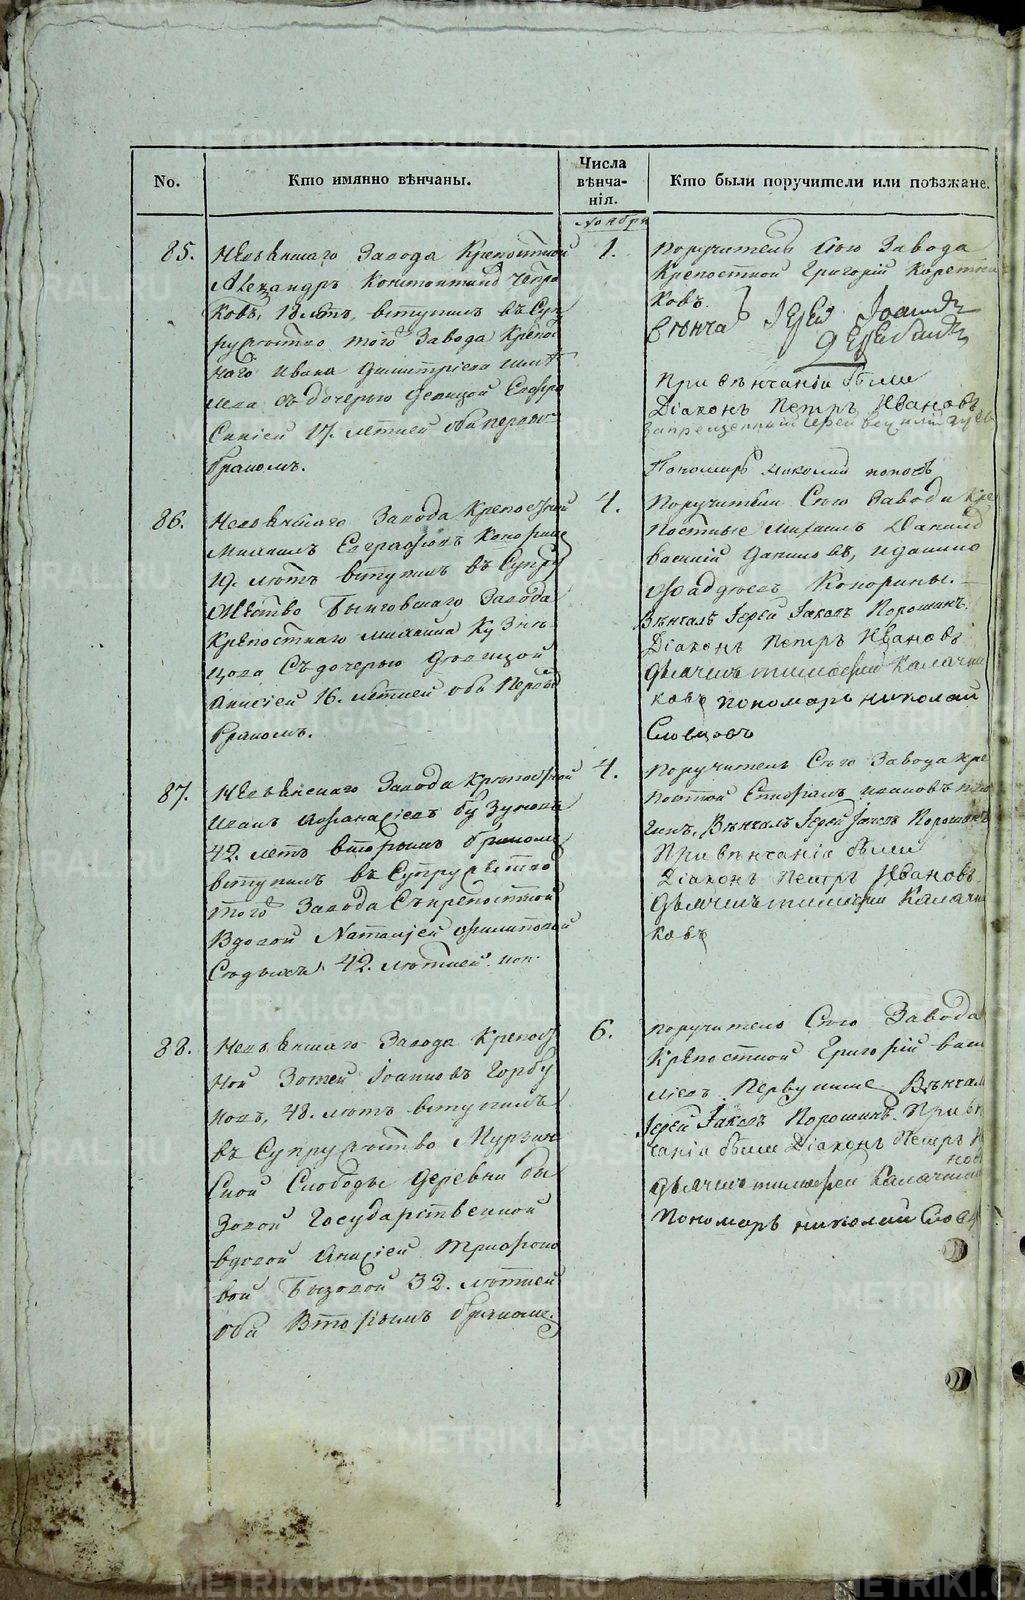 No.
Кто имянно вѣнчаны.
Числа
вѣнча-
нія.
Кто были поручители или поѣзжане.
Ноября
85.
Невьянскаго Завода Крепостной
Александръ Константиновъ
ковъ, 18 летъ, вступилъ въ Суп
ружество того Завода Крепос
наго Ивана Димитріева
съ дочерью девицой Евфро
синіей 17. летней оба первы
бракомъ.
1.
Поручитель Сего Завода
Крепостной Григорій
ковъ.
Венча Іерей Іоаннъ
При венчаніи были
Діаконъ Петръ Ивановъ
Запрещенный Іерей
Пономарь Николай Попов
86.
Невьянскаго Завода Крепостной
Михаилъ Евграфовъ
19. летъ вступилъ въ Супру
жество Бынговскаго Завода
Крепостнаго Михаила Кузне
цова Съ дочерью девицой
Анисіей 16. летней оба Первы
бракомъ.
4.
Поручители Сего Завода Кре
постные Михаилъ
Василій Даниловъ, и Данило
Фаддеевъ Конорины.
Вѣнчалъ Іерей Іаковъ Порошинъ.
Діаконъ Петръ Ивановъ
Дьячекъ тимофей Калачни
ковъ пономарь николай
Словцовъ
87.
Невьянскаго Завода Крепостной
Иванъ Афанасіевъ
42. летъ вторымъ бракомъ
вступилъ въ Супружество
того Завода Съ крепостной
Вдовой Наталіей Филиповой
42. летней
4.
Поручитель Сего Завода кре
постной Стефанъ ивановъ
Вѣнчалъ Іерей Іаковъ Порошинъ
При вѣнчаніи были
Діаконъ Петръ Ивановъ
Дьячекъ тимофей Калачни
ковъ
88.
Невьянскаго Завода Крепост
ной Зотей Іоанновъ Горбу
новъ, 48. летъ вступилъ
въ Супружество Мурзин
ской Слободы Деревни бы
зовой Государственной
вдовой Анисіей Трифоно
вой Бызовой 32. летней
оба Вторымъ бракомъ.
6.
Поручитель Сего Завода
Крепостной Григорій Васи
лiевъ Первушинъ Вѣнчалъ
Іерей Іаковъ Порошинъ. При вѣн
чаніи были Діаконъ Петръ И
нов
Дьячекъ тимофей Калачник
Пономарь николай Словц
METRIKI.GASO-URAL.RU